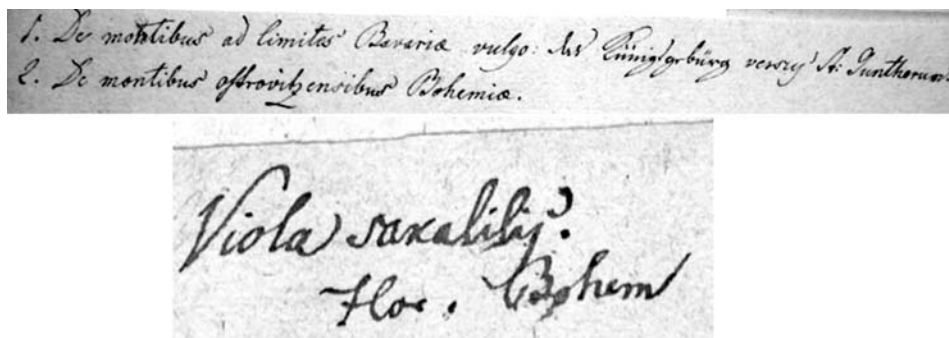 1. De montibus ad limites Bavariæ vulgo: das Künigsgebürg versus St: Guntherum.
2. De montibus ostrovitzensibus Bohemiæ.
Viola saxatilis.
Flor. Bohem